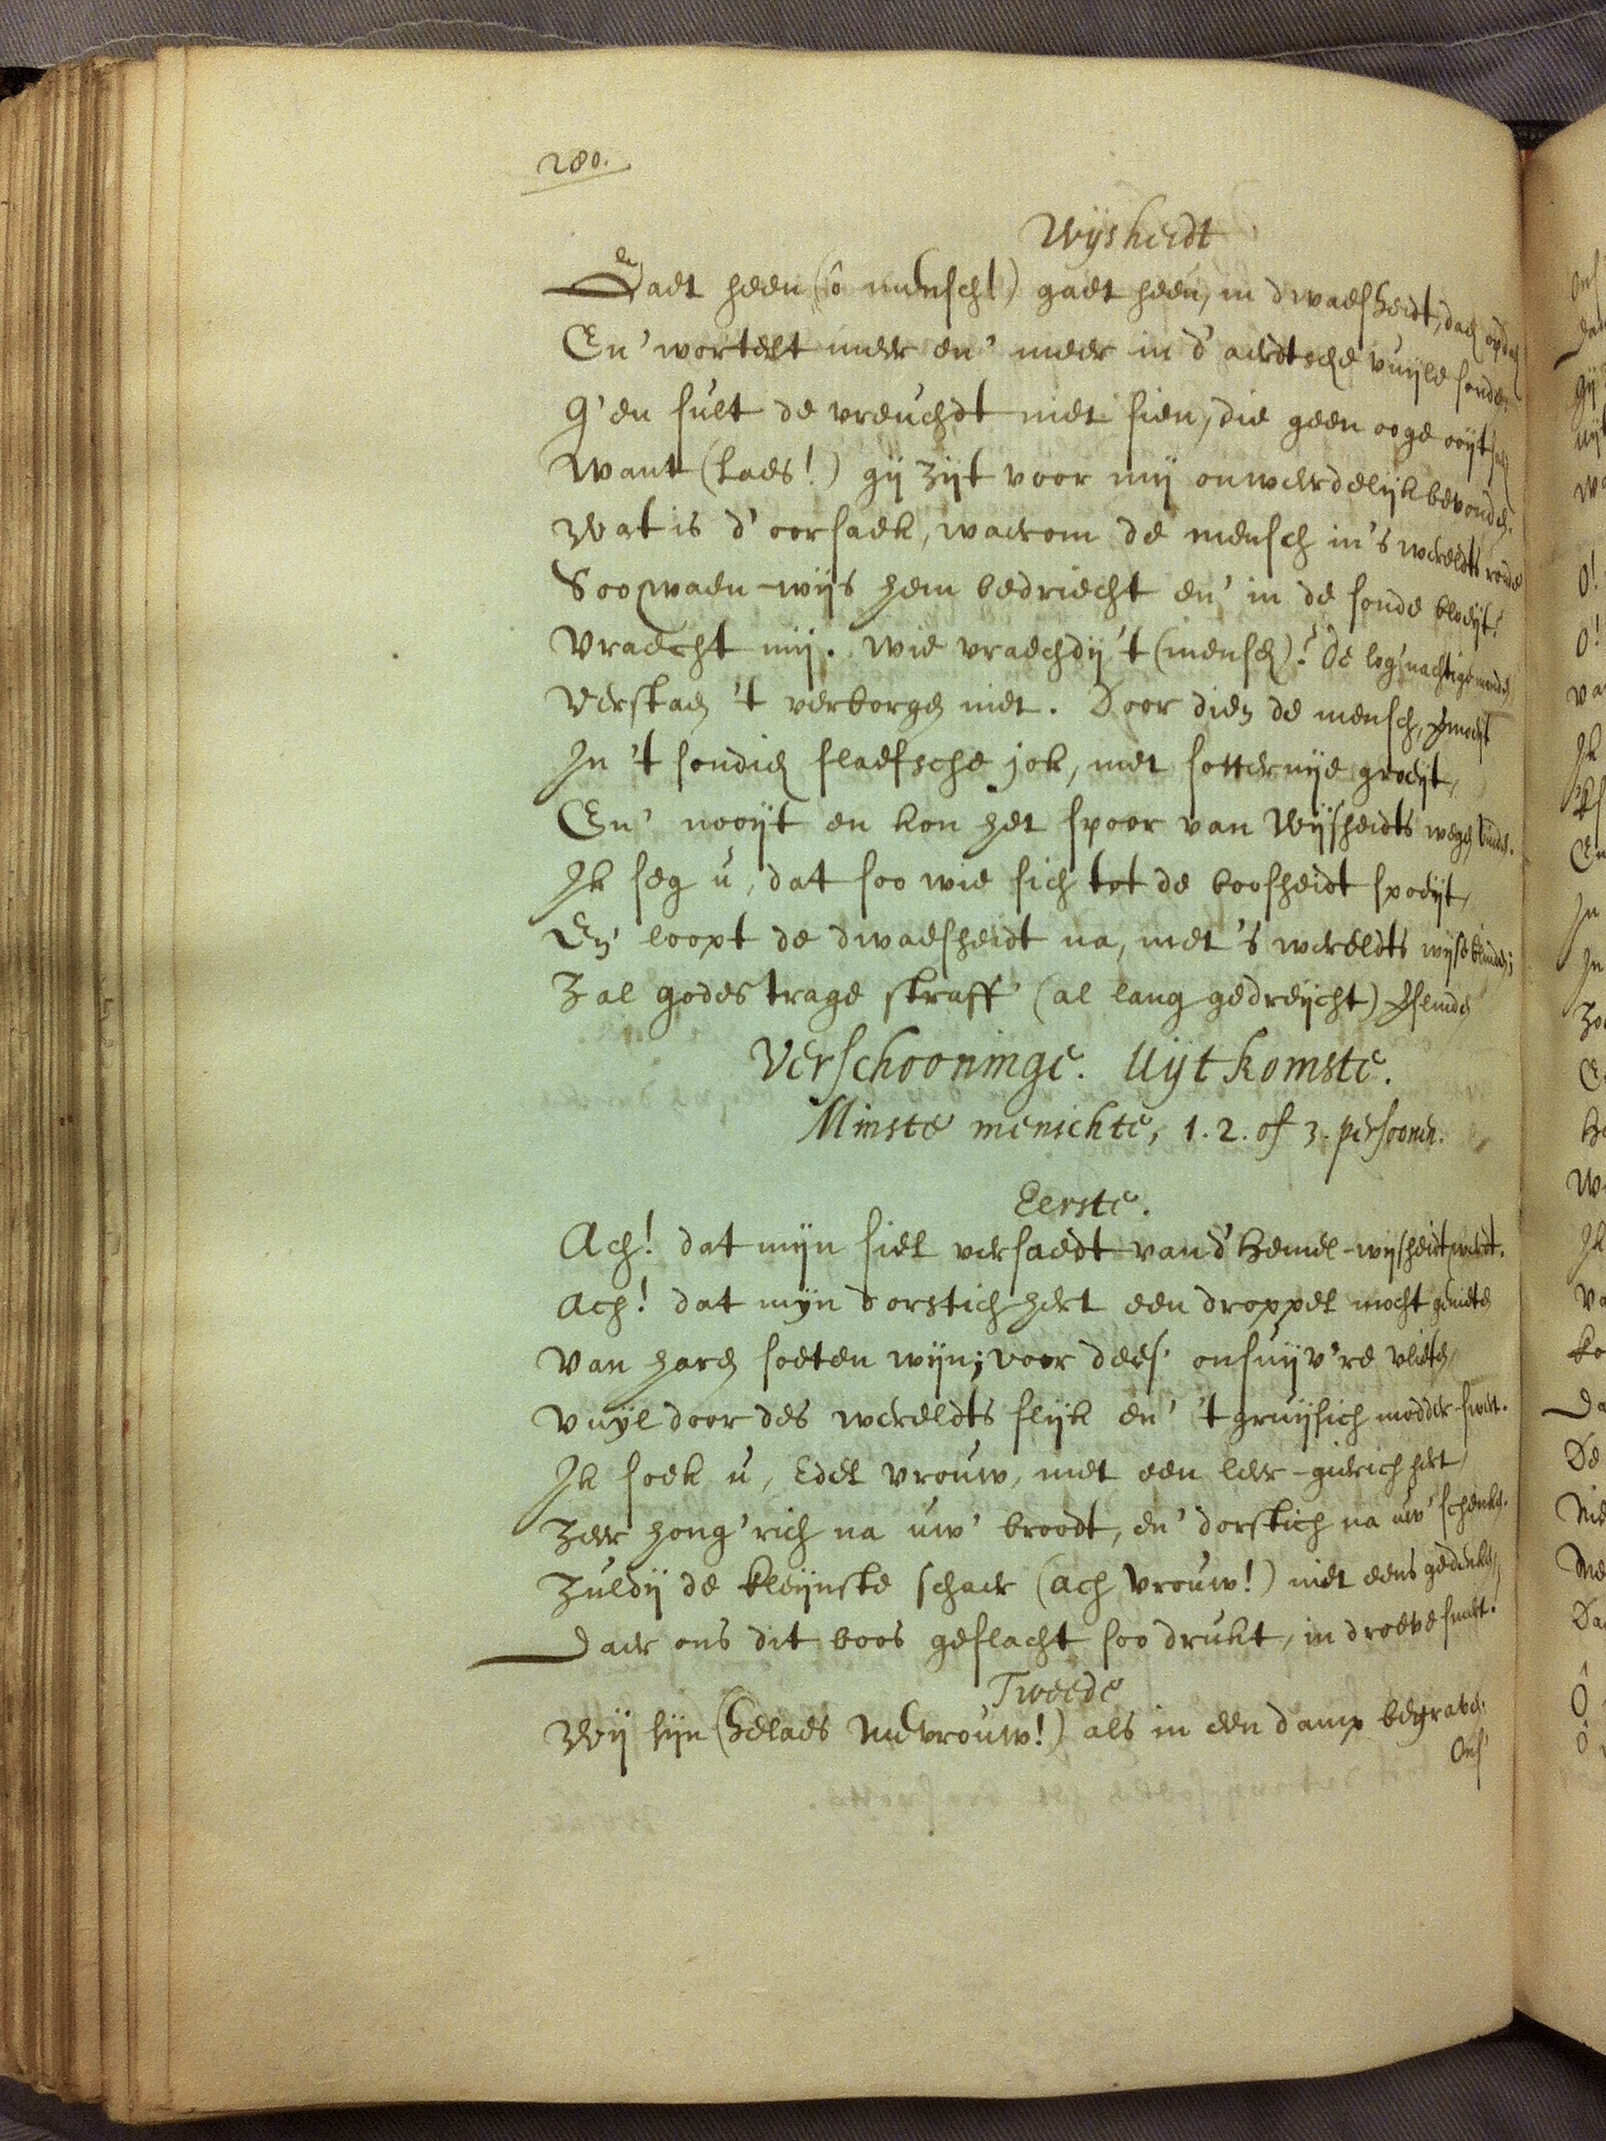 280.
Wijsheidt
Gaet heen (ô mensch!) gaet heen, in dwaesheidt,
En' wortelt meer en' meer in d' aerdtsche vuijle sonde.
G'en sult de vreuchdt niet sien, die geen ooge ooijt
Want (laes!) gij zijt voor mij onwerdelijk bevonde.
Wat is d' oorsaek, waerom de mensch in 's wereldts ronde
Soo waen-wijs hem bedriecht en' in de sonde bloeijt?
Vraecht mij. wie vraechdij 't (mensch)? De log'nachtige monde
Verstaen 't verborgen niet. Door dien de mensch,
In 't sondich slaefsche jok, met sotternije groeijt,
En' nooijt en kon het spoor van Wijsheidts wegen vinden.
Ik seg u, dat soo wie sich tot de boosheidt spoeijt,
En loopt de dwaesheidt na, met 's wereldts wijse blinden;
Zal godes trage straff' (al lang gedreijcht)
Verschooninge. Uijtkomste.
Minste menichte, 1. 2. of 3. persoonen.
Eerste.
Ach! dat mijn siel versaedt van d' Hemel-wijsheidt werdt.
Ach! dat mijn dorstich hert een droppel mocht genieten
Van haren soeten wijn; voor dees' onsuijv're vlieten
Vuijl door des wereldts slijk en' 't gruijsich modder-swert.
Ik soek u, Edel vrouw, met een leer-gierich hert,
Zeer hong'rich na uw' broodt, en' dorstich na uw' schenken.
Zuldij de kleijnste schaer (ach vrouw!) niet eens gedenken,
Daer ons dit boos geslacht soo drukt, in droeve smert.
Tweede
Wij sijn (helaes Mevrouw!) als in een damp begraven.
Ons'